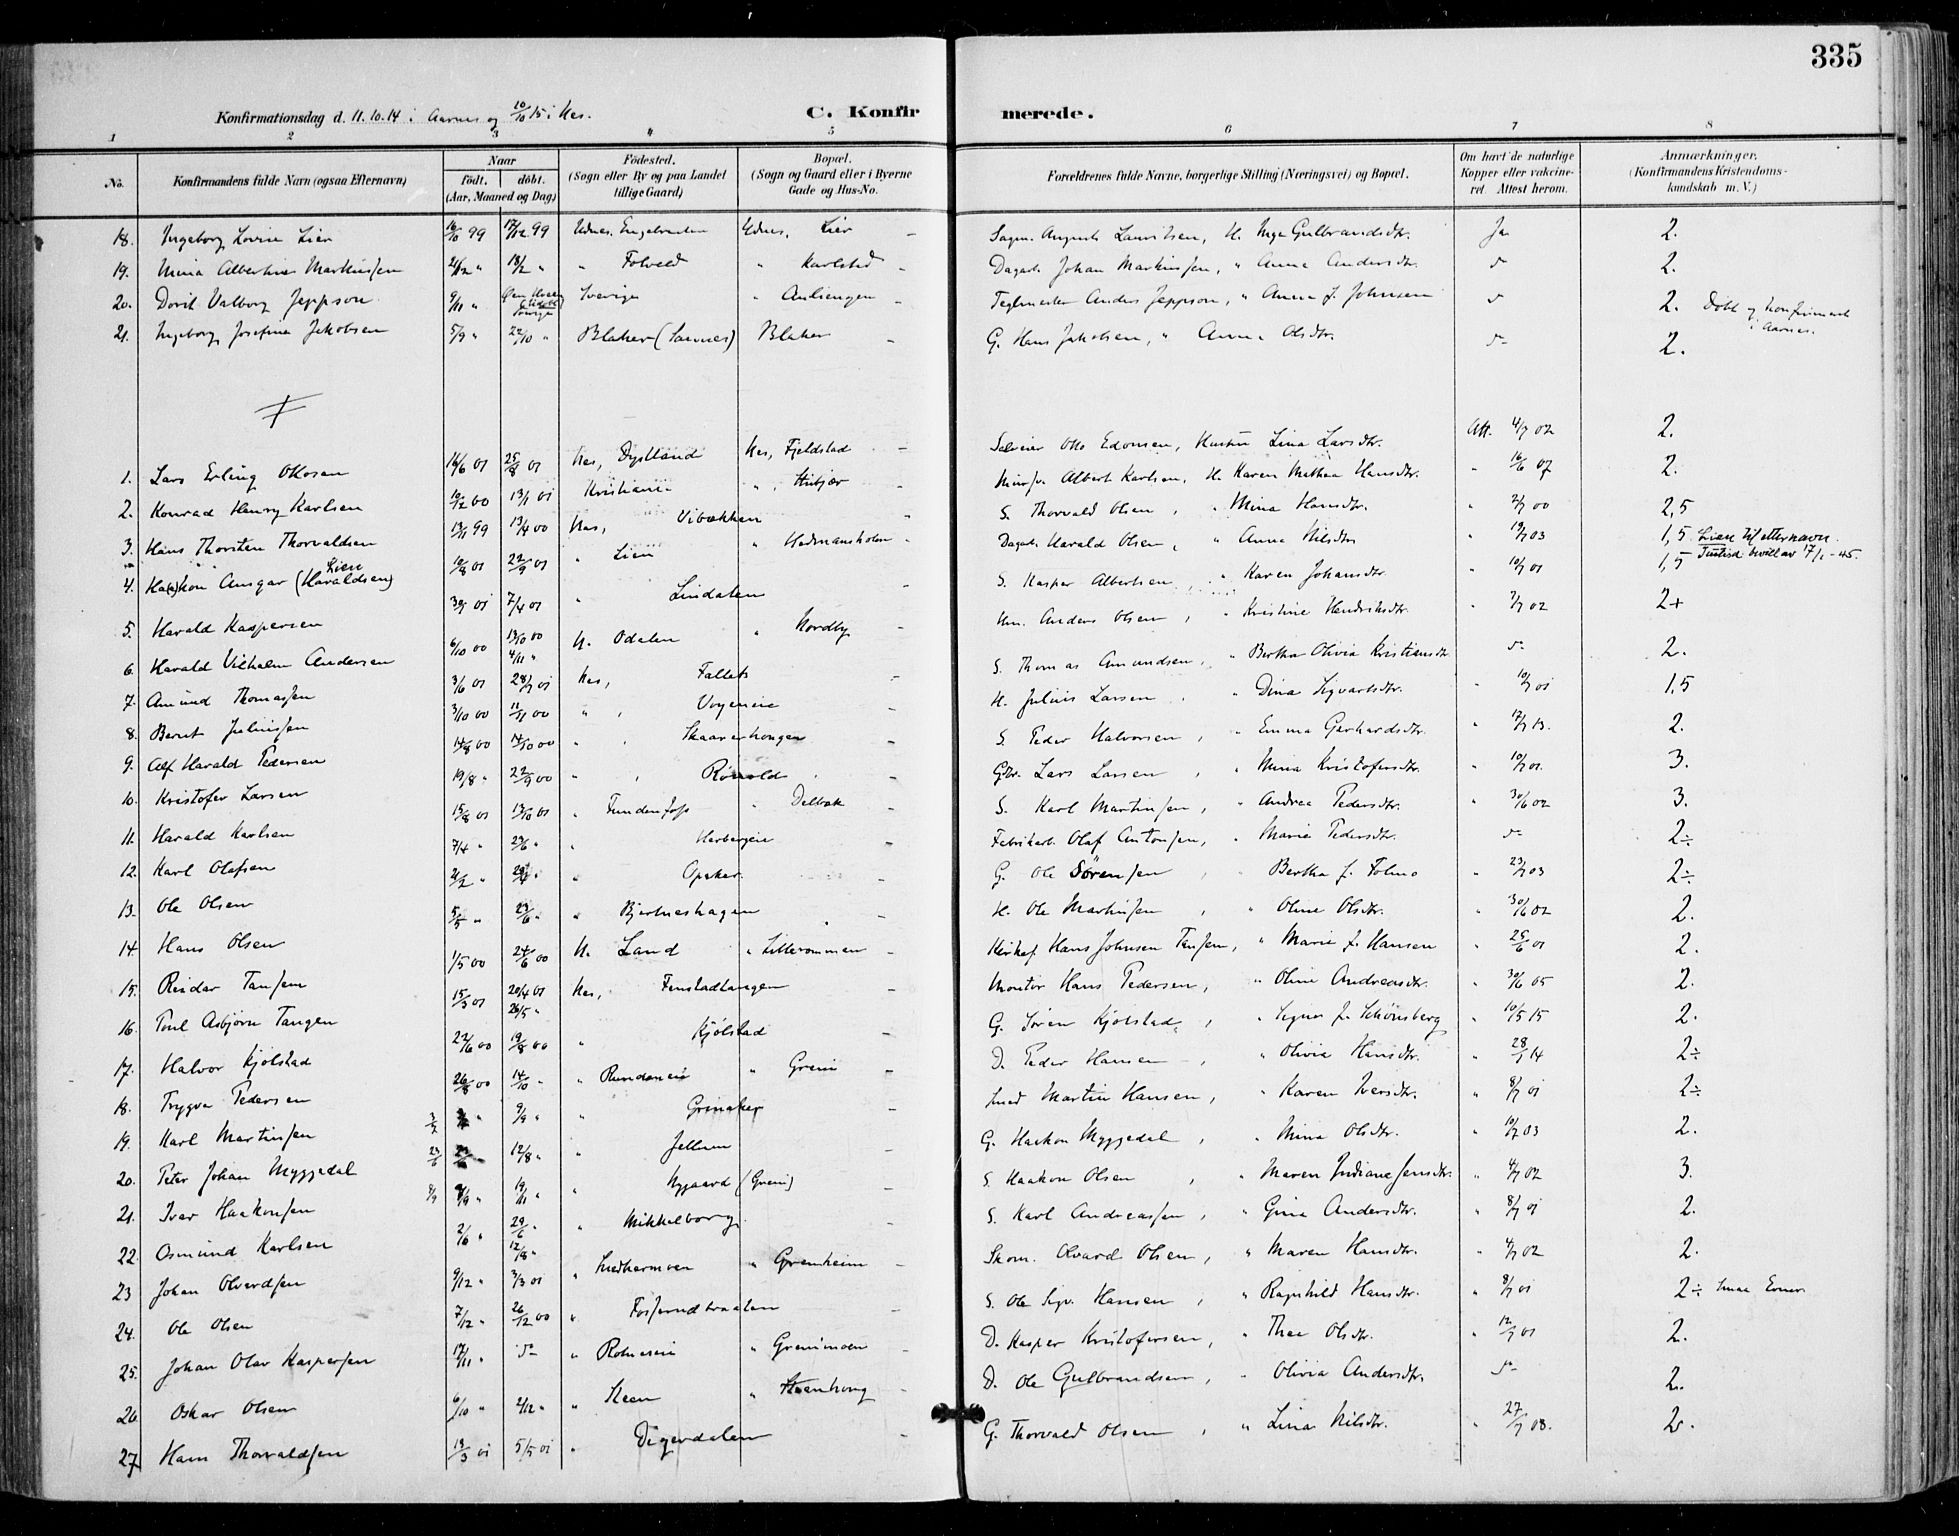 335
Konfirmationsdag d. 11.10.14 i Aarnes og 10/10 15 i Nes. C. Konfirmerede.
1 2 3 4 5 6 7 8
No. Konfirmandens fulde Navn (ogsaa Efternavn) Naar födt. döbt. (Aar, Maaned og Dag) Födested. (Sogn eller By og paa Landet tillige Gaard) Bopæl. (Sogn og Gaard eller i Byerne Gade og Hus-No. Forældrenes fulde Navne, borgerlige Stilling (Næringsvei) og Bopæl. Om havt de naturlige Kopper eller vakcineret. Attest herom. Anmærkninger. (Konfirmandens Kristendomskundskab m. V.)
18. Ingeborg Lovise Lier 16/10 99 17/12 99 Udnes, Udnes, Lier August Lauritsen, H. Inga Gulbrandsdtr. Ja 2.
19. Mina Albertine Markussen 2/12 " 18/2 " " Folveld " Karlstad Dagarb. Johan Markussen, " Anna Andersdtr. 2.
20. Dorit Valborg Jeppson 9/11 " Sverige " Auliengen Teglmester Anders Jeppson, " Anna f. Johnsen 2. Döbt og konfirmert i Aarnes.
21. Ingeborg Josefine Jakobsen 5/9 " 22/10 " Blaker (Sørnes) Blaker G. Hans Jakobsen, " Anna Olsdtr. 2.
1. Lars Erling Ottosen 16/6 01 25/8 01 Nes, Dystland Nes, Fjeldstad Selveier Otto Edonsen, Hustru Lina Larsdtr. Att. 4/7 02 2.
2. Konrad Henry Karlsen 10/12 00 13/1 01 Kristiania Albert Karlsen, H. Karen Mathea Hansdtr. " 16/6 07 2.
3. Hans Thorsten Thorvaldsen 13/11 99 13/4 00 Nes, Vibækken S. Thorvald Olsen, " Mina Hansdtr. " 2/7 00 2,5
4. Ha(a)kon Ansgar (Haraldsen) Lien 10/8 01 22/9 01 " Lien " Hedmansholm Dagarb. Harald Olsen, " Anna Nilsdtr " 19/7 03 1,5 Lien til etternavn. Justisd. bevill. av 17/1-45.
5. Harald Kaspersen 7/4 01 " Lindalen S. Kasper Albertsen, " Karen Johansdtr " 10/7 01 1,5
6. Harald Vilhelm Andersen 6/10 00 13/10 00 4/11 " N. Odalen " Nordby Anders Olsen, " Kristine Hendriksdtr. " 7/7 02 2+
7. Amund Thomassen 3/6 01 28/7 01 Nes, Fallet S. Thomas Amundsen, " Bertha Olivia Kristiansdtr. 2.
8. Bernt Juliussen 3/10 00 11/11 00 " H. Julius Larsen, " Dina Sigvartsdtr. " 10/7 01 1,5
9. Alf Harald Pedersen 14/8 00 14/10 00 " Skaarerhougen S. Peder Halvorsen, " Emma Gerhardsdtr. " 17/7 13. 2.
10. Kristofer Larsen 19/8 " 22/9 00 " Rönold Gbr. Lars Larsen, " Mina Kristofersdtr. " 10/7 01. 3.
11. Harald Karlsen 15/8 01 13/10 01 " Fundenfoss " Delbak S. Karl Martinsen, " Andrea Pedersdtr. " 30/6 02 3.
12. Karl Olafsen 7/4 " 23/6 " " Herbergeie Fabrikarb. Olaf Antonsen, " Marie Pedersdtr. 2÷
13. Ole Olsen 2/2 " " Opaker. G. Ole Sörensen, Bertha f. Folmo " 23/7 03 2÷
14. Hans Olsen 5/5 " 23/6 " " Bjertneshagen H. Ole Martinsen, " Oline Olsdtr. " 30/6 02 2.
15. Reidar Tansem 1/5 00 24/6 00 N. Land " Lillerommen Hans Johnsen Tansem, " Marie f. Hansen " 25/6 01 2.
16. Poul Asbjörn Tangen 15/3 01 20/4 01 26/5 " Nes, Fenstadtangen Montör Hans Pedersen, " Oline Andreasdtr. " 30/6 05 2.
17. Halvor Kjölstad 22/6 00 19/8 00 " Kjölstad G. Sören Kjölstad, " Signe f. Schönsberg " 10/5 15 2.
18. Trygve Pedersen 26/8 00 14/10 " " Rundaneie " Greni D. Peder Hansen, " Olivia Hansdtr. " 28/1 14 2÷
19. Karl Martinsen 3/7 " 9/9 " " Grinaker Smed Martin Hansen, " Karen Iversdtr. " 8/7 01 2÷
20. Peter Johan Myggedal 23/6 12/8 " " Jellum G. Haakon Myggedal, " Mina Olsdtr. " 10/7 03 2.
21. Ivar Haakonsen 8/9 9/9 " 19/11 " " Nygaard (Greni) S. Haakon Olsen, " Maren Indiane Jensdtr. " 4/7 02 3.
22. Osmund Karlsen 2/6 " 29/6 " 12/8 " " Mikkelborg S. Karl Andreassen, " Gina Andersdtr. " 8/7 01 2.
23 Johan Olvardsen 9/12 " 3/3 01 " Smedhermoen " Grenheim Skom. Olvard Olsen, " Maren Hansdtr. " 4/7 02 2.
24. Ole Olsen 7/12 " 26/12 00 " Fosserudbraaten S. Ole Sigv. Hansen, " Ragnhild Hansdtr. " 8/7 01 2÷ Smaa Evner.
25. Johan Olav Kaspersen 17/11 " " " Grenimoen D. Kasper Kristofersen, " Thea Olsdtr. " 12/7 01 2.
26 Oskar Olsen 6/10 " 2/12 " " Steen " Steenhoug D. Ole Gulbrandsen, " Olivia Andersdtr. 2.
27 Hans Thorvaldsen 13/3 01 5/5 01 " Digerdalen G. Thorvald Olsen, " Lina Nilsdtr. " 27/7 08. 2.